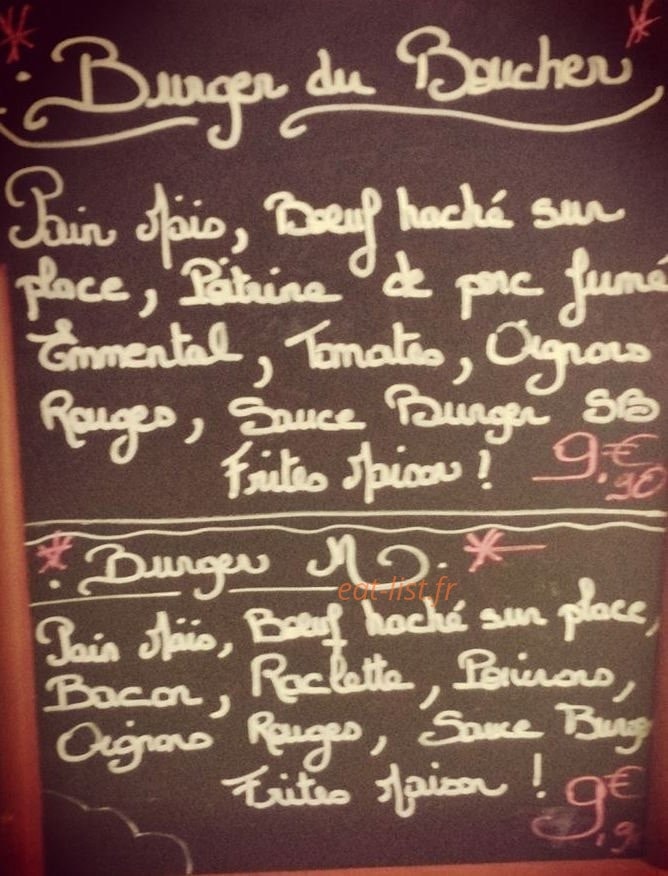 Burger du Boucher
Pain Maïs, Bœuf haché sur
place, Poitrine de porc fumé
Emmental, Tomates, Oignons
Rouges, Sauce Burger SB
Frites Maison !
9,€90
Burger
eat-list.fr
Pain Maïs, Bœuf haché sur place,
Bacon, Raclette, Poivrons,
Oignons Rouges, Sauce Burg
Frites Maison !
9€
,9